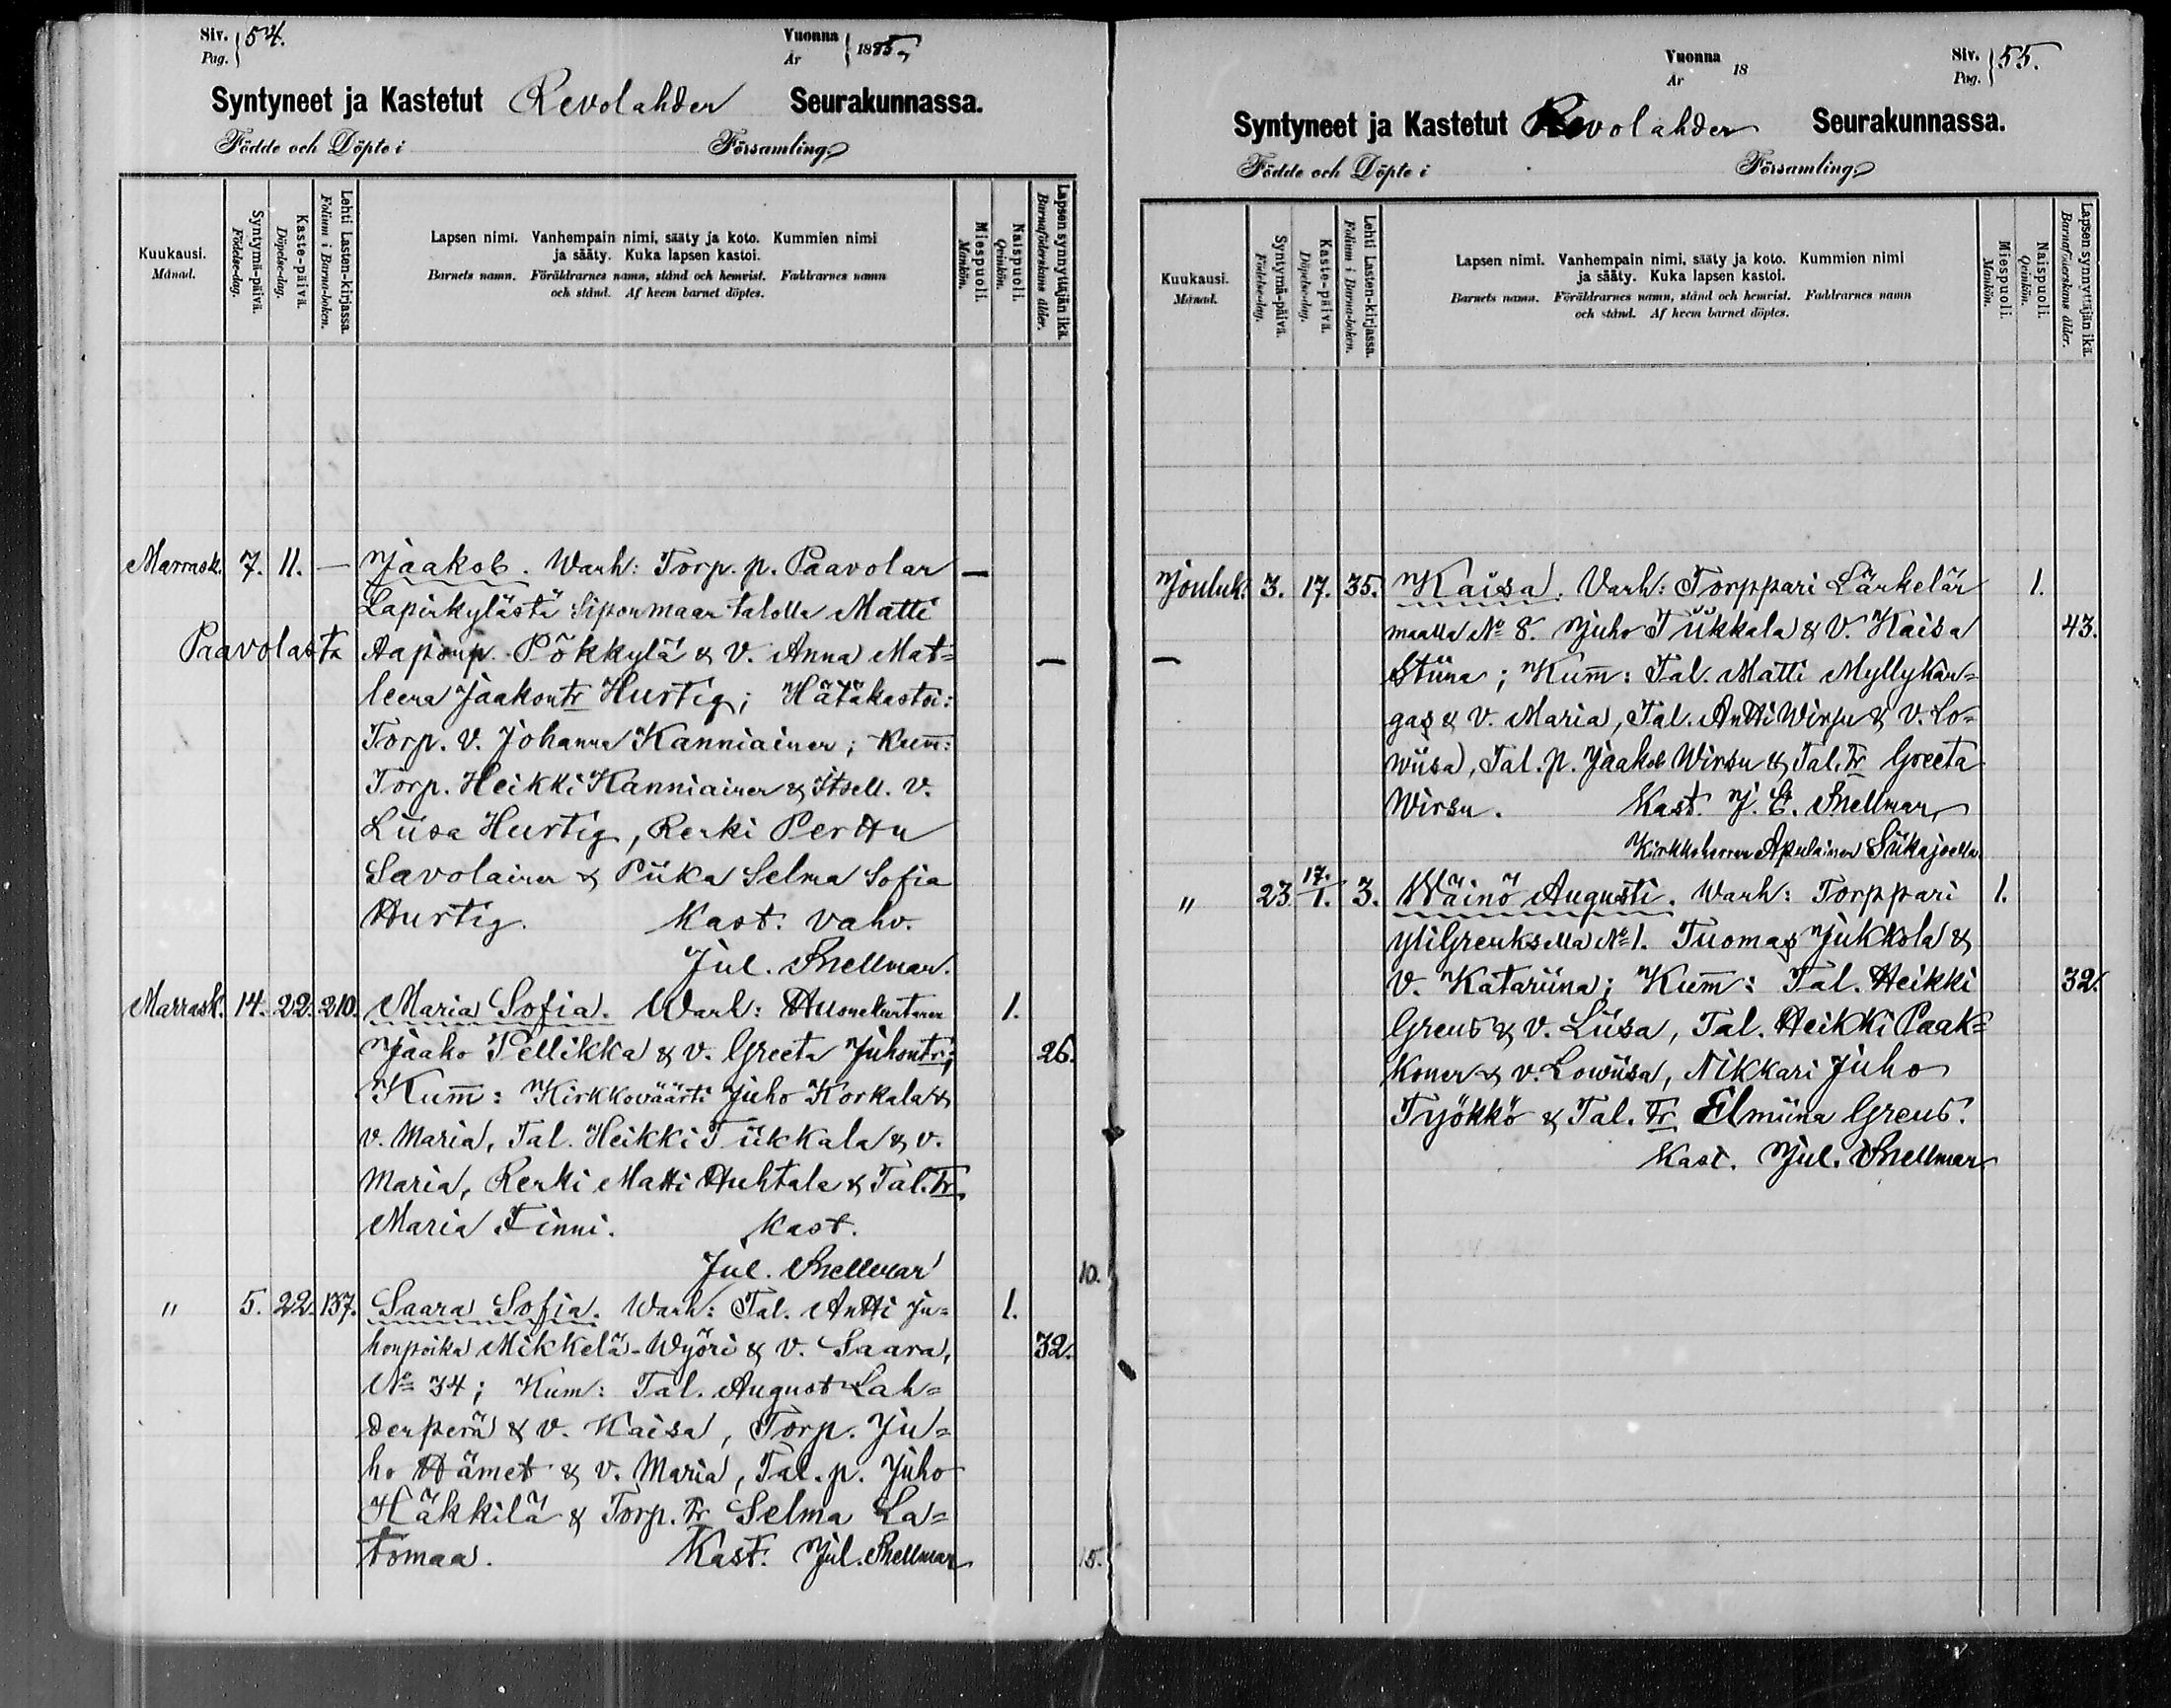 Siv. Pag. } 54.
Vuonna År } 1885,
Syntyneet ja Kastetut Revolahden Seurakunnassa.
Födde och Döpte i Församling
Kuukausi. Månad.
Syntymä-päivä. Födelse-dag.
Kaste-päivä. Döpelse-dag.
Lehti Lasten-kirjassa. Folium i Barna-boken.
Lapsen nimi. Vanhempain nimi, sääty ja koto. Kummien nimi
ja sääty. Kuka lapsen kastoi.
Barnets namn. Föräldrarnes namn, stånd och hemvist. Faddrarnes namn
och stånd. Af hvem barnet döptes.
Miespuoli. Mankön.
Naispuoli. Qvinkön.
Lapsen synnyttäjän ikä. Barnaföderskans ålder.
Marrask. 7. 11. — Jaakob. Wanh: Torp. p. Paavolan —
Lapinkylästä Siponmaan talolla Matti
Paavolasta Aaponp. Pökkylä & V. Anna Mat= —
leena Jaakontr Hurtig; Hätäkastoi:
Torp. V. Johanna Kanniainen; Kum̄:
Torp. Heikki Kanniainen & Itsell. v.
Liisa Hurtig, Renki Perttu
Savolainen & Piika Selma Sofia
Hurtig. Kast. vahv.
Jul. Snellman.
Marrask. 14. 22. 210. Maria Sofia. Wanh: Huonekuntanen 1.
Jaako Pellikka & v. Greeta Juhontr; 26.
Kum̄: Kirkkoväärti Juho Korkala &
v. Maria, Tal. Heikki Tiikkala & v.
Maria, Renki Matti Huhtala & Tal. Tr
Maria Finni. Kast.
Jul. Snellman 10.
" 5. 22. 137. Saara Sofia. Wanh: Tal. Antti Ju= 1.
honpoika Mikkelä-Wyöri & V. Saara, 32.
№ 34; Kum: Tal. August Lah=
denperä & v. Kaisa, Torp. Ju=
ho Hämet & v. Maria, Tal. p. Juho
Häkkilä & Torp. Tr Selma La=
tomaa. Kast. Jul. Snellman 15.
Vuonna År 18
Siv. Pag. } 55.
Syntyneet ja Kastetut Revolahden Seurakunnassa.
Födde och Döpte i Församling
Kuukausi. Månad.
Syntymä-päivä. Födelse-dag.
Kaste-päivä. Döpelse-dag.
Lehti Lasten-kirjassa. Folium i Barna-boken.
Lapsen nimi. Vanhempain nimi, sääty ja koto. Kummien nimi
ja sääty. Kuka lapsen kastoi.
Barnets namn. Föräldrarnes namn, stånd och hemvist. Faddrarnes namn
och stånd. Af hvem barnet döptes.
Miespuoli. Mankön.
Naispuoli. Qvinkön.
Lapsen synnyttäjän ikä. Barnaföderskans ålder.
Jouluk. 3. 17. 35. Kaisa. Vanh: Torppari Lärkelän 1.
maalla № 8. Juho Tiikkala & V. Kaisa 43.
— Stiina; Kum̄: Tal. Matti Myllykan=
gas & V. Maria, Tal. Antti Wirsu & V. Lo=
wiisa, Tal. p. Jaakob Wirsu & Tal. Tr Greeta
Wirsu. Kast. J. E. Snellman,
Kirkkoherran Apulainen Siikajoella.
" 23 17./1. 3. Wäinö Augusti. Wanh: Torppari 1.
yliGreuksella № 1. Tuomas Jukkola &
V. Katariina; Kum̄: Tal. Heikki 32.
Greus & V. Liisa, Tal. Heikki Paak=
konen & v. Lowiisa, Nikkari Juho
Työkkö & Tal. Tr Elmiina Greus.
Kast. Jul. Snellman